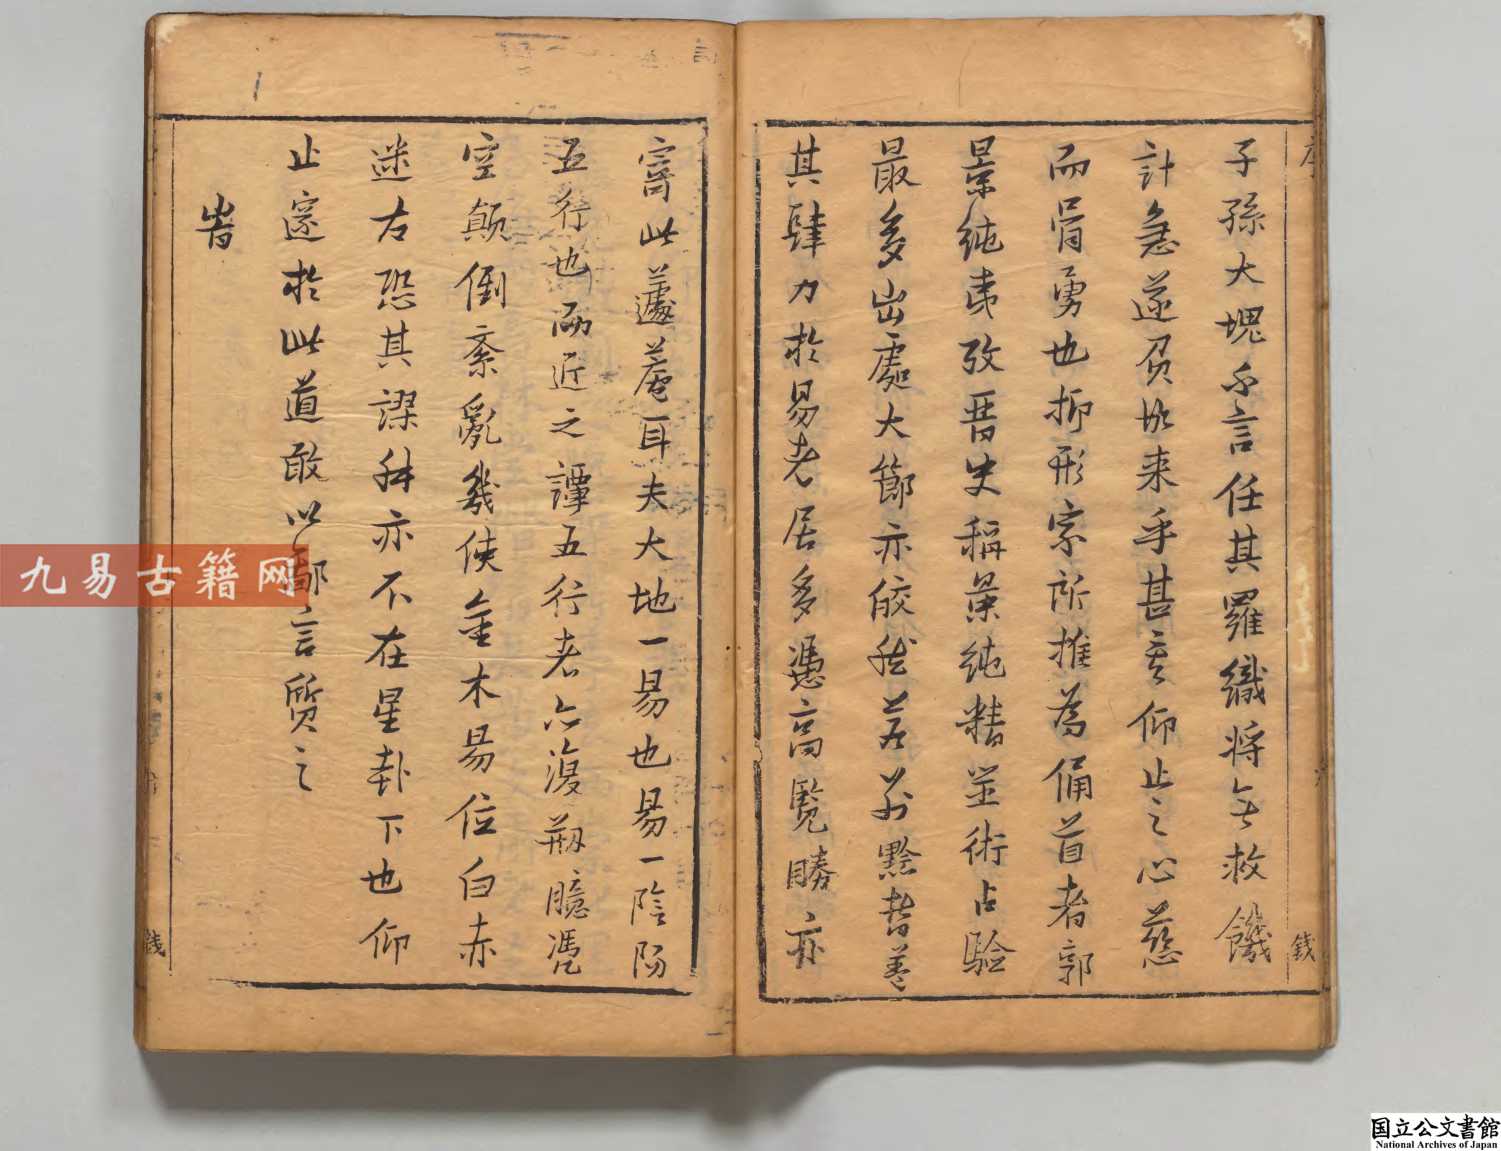 子孫大塊不言任其羅織將無救饑
計急遂負扒来乎甚哉仰止之心慈
而胥勇也抑形家所推為俑首者郭
景純夷攷晋史稱景純精并術占驗
最多出處大節亦皎然若前黔者蓋
其肆力於易者居多憑高覽勝亦
寄此蘧菴耳夫大地一易也易一陰陽
五行也而近之譚五行者亦復剏臆憑
空顛倒紊亂幾使金木易位白赤
迷右恐其謬舛亦不在星卦下也仰
止邃於此道敢以鄙言質之
峕
九易古籍网
国立公文書館
National Archives of Japan